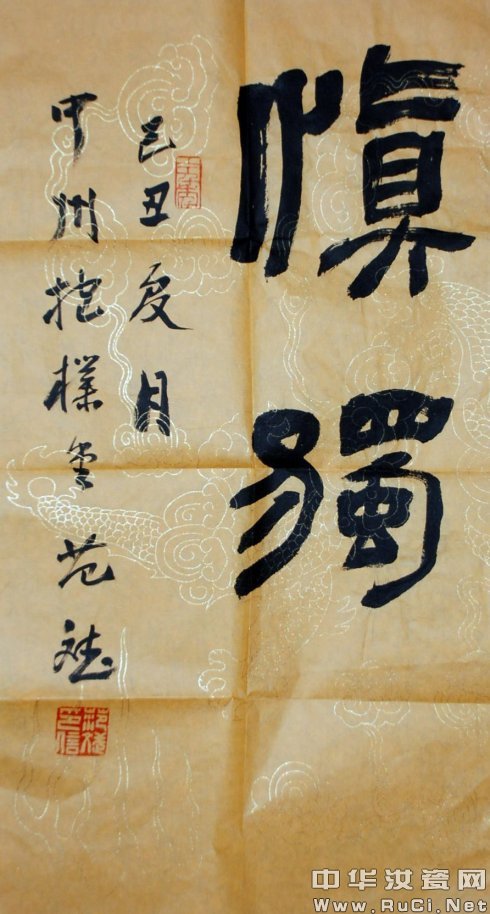 慎獨
己丑夏月
中州抱樸堂范斌
中华汝瓷网
Www.RuCi.Net